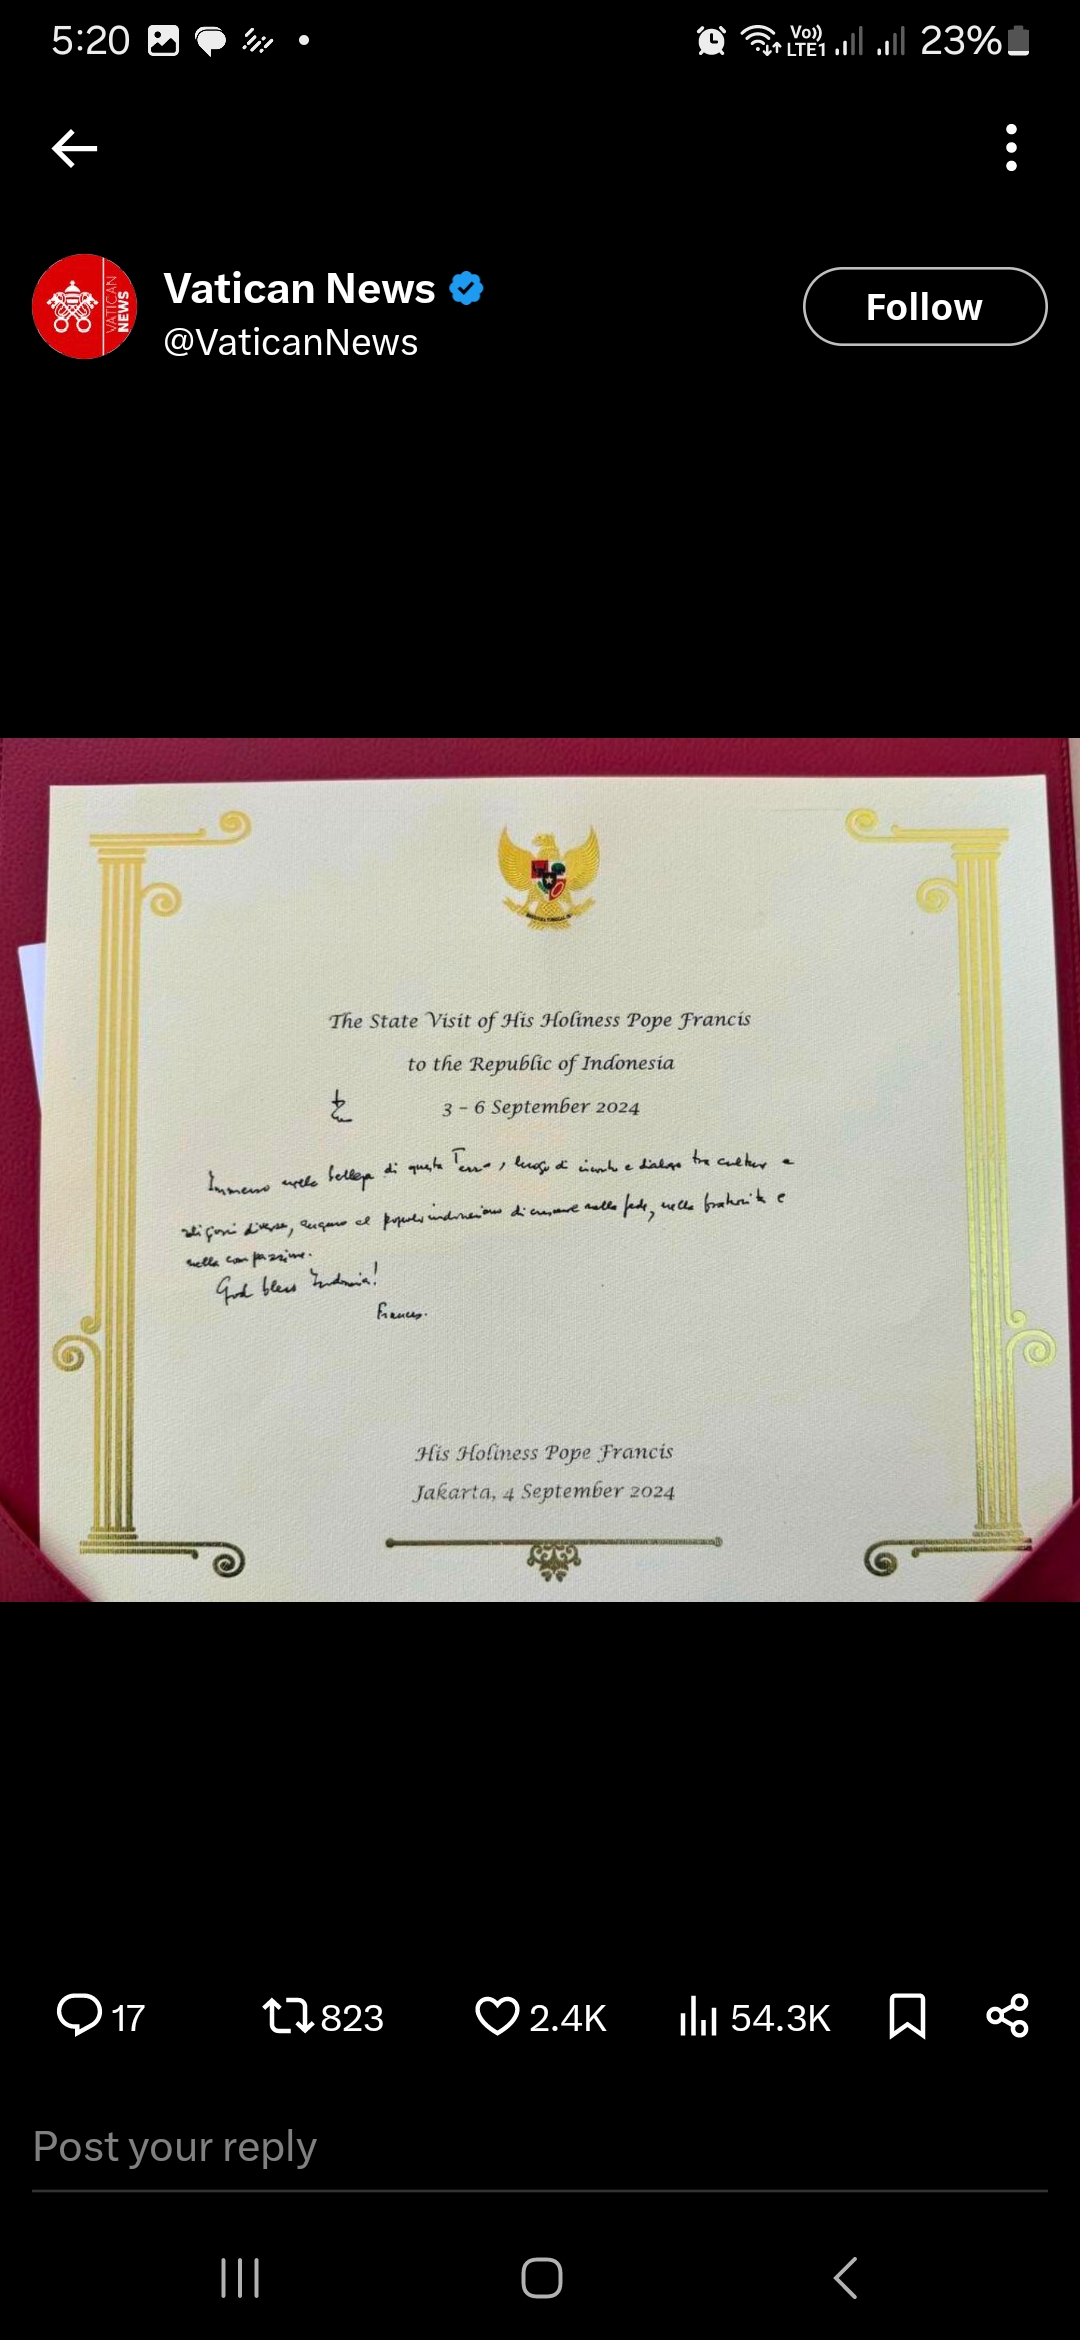 5:20
Vo)) LTE1
23%
VATICAN NEWS
Vatican News
@VaticanNews
Follow
The State Visit of His Holiness Pope Francis
to the Republic of Indonesia
3 - 6 September 2024
Immerso nella bellezza di questa Terra, luogo di incontro e dialogo tra culture e
religioni diverse, auguro al popolo indonesiano di crescere nella fede, nella fraternità e
nella compassione.
God bless Indonesia!
Francesco
His Holiness Pope Francis
Jakarta, 4 September 2024
17
823
2.4K
54.3K
Post your reply